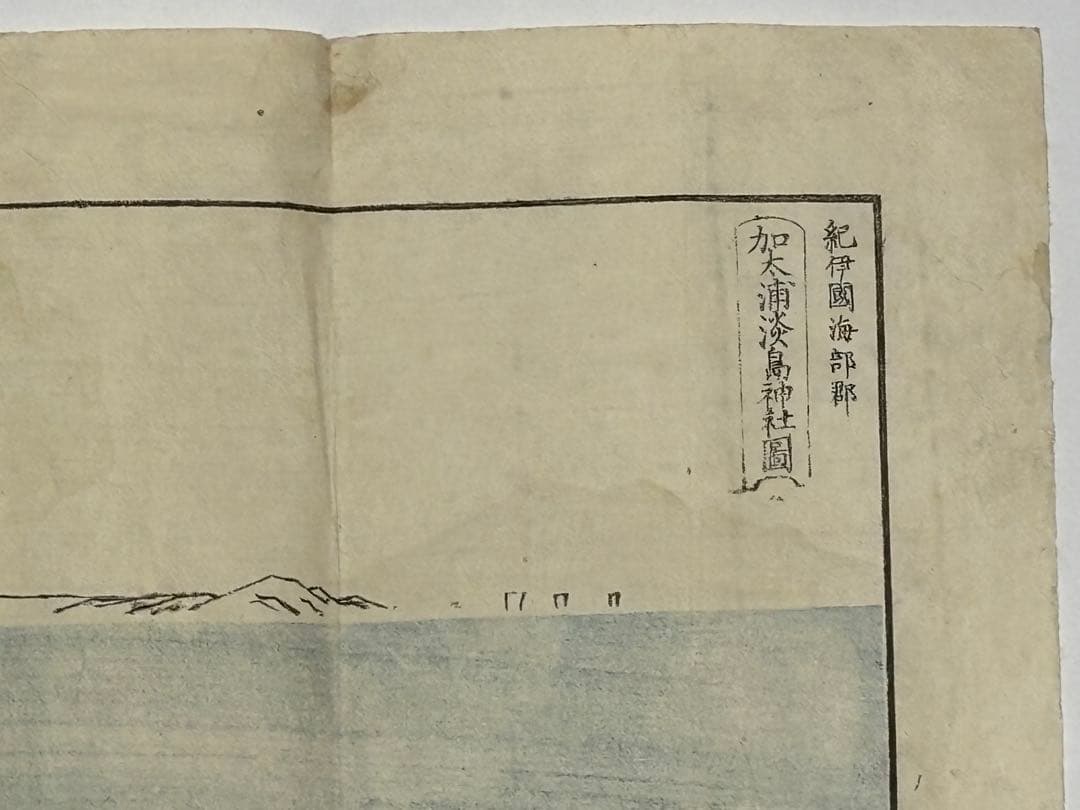 紀伊國海部郡
加太浦淡島神社圖